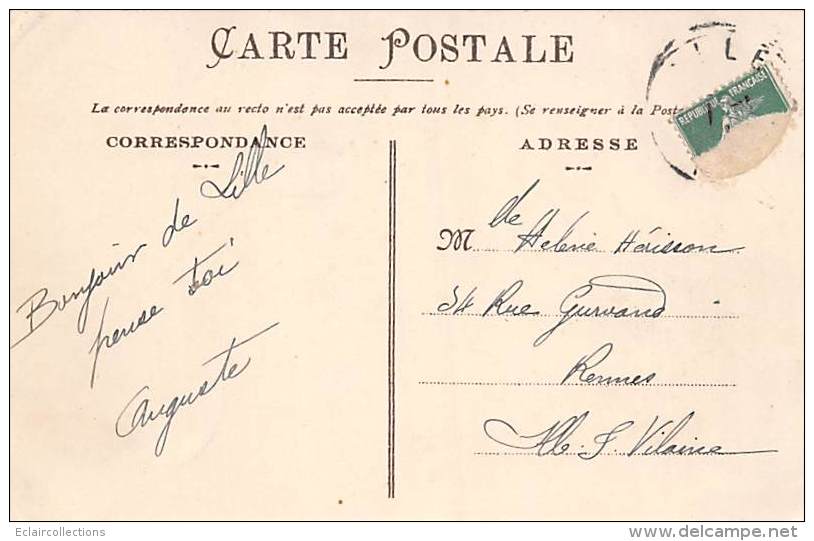 CARTE POSTALE
La correspondance au recto n'est pas acceptée par tous les pays. (Se renseigner à la Poste
CORRESPONDANCE
Bonjour de Lille
pense toi
Auguste
ADRESSE
REPUBLIQUE FRANÇAISE
Mlle Helene Hérisson
34 Rue Gurvand
Rennes
Ille & Vilaine
Eclaircollections
www.delcampe.net